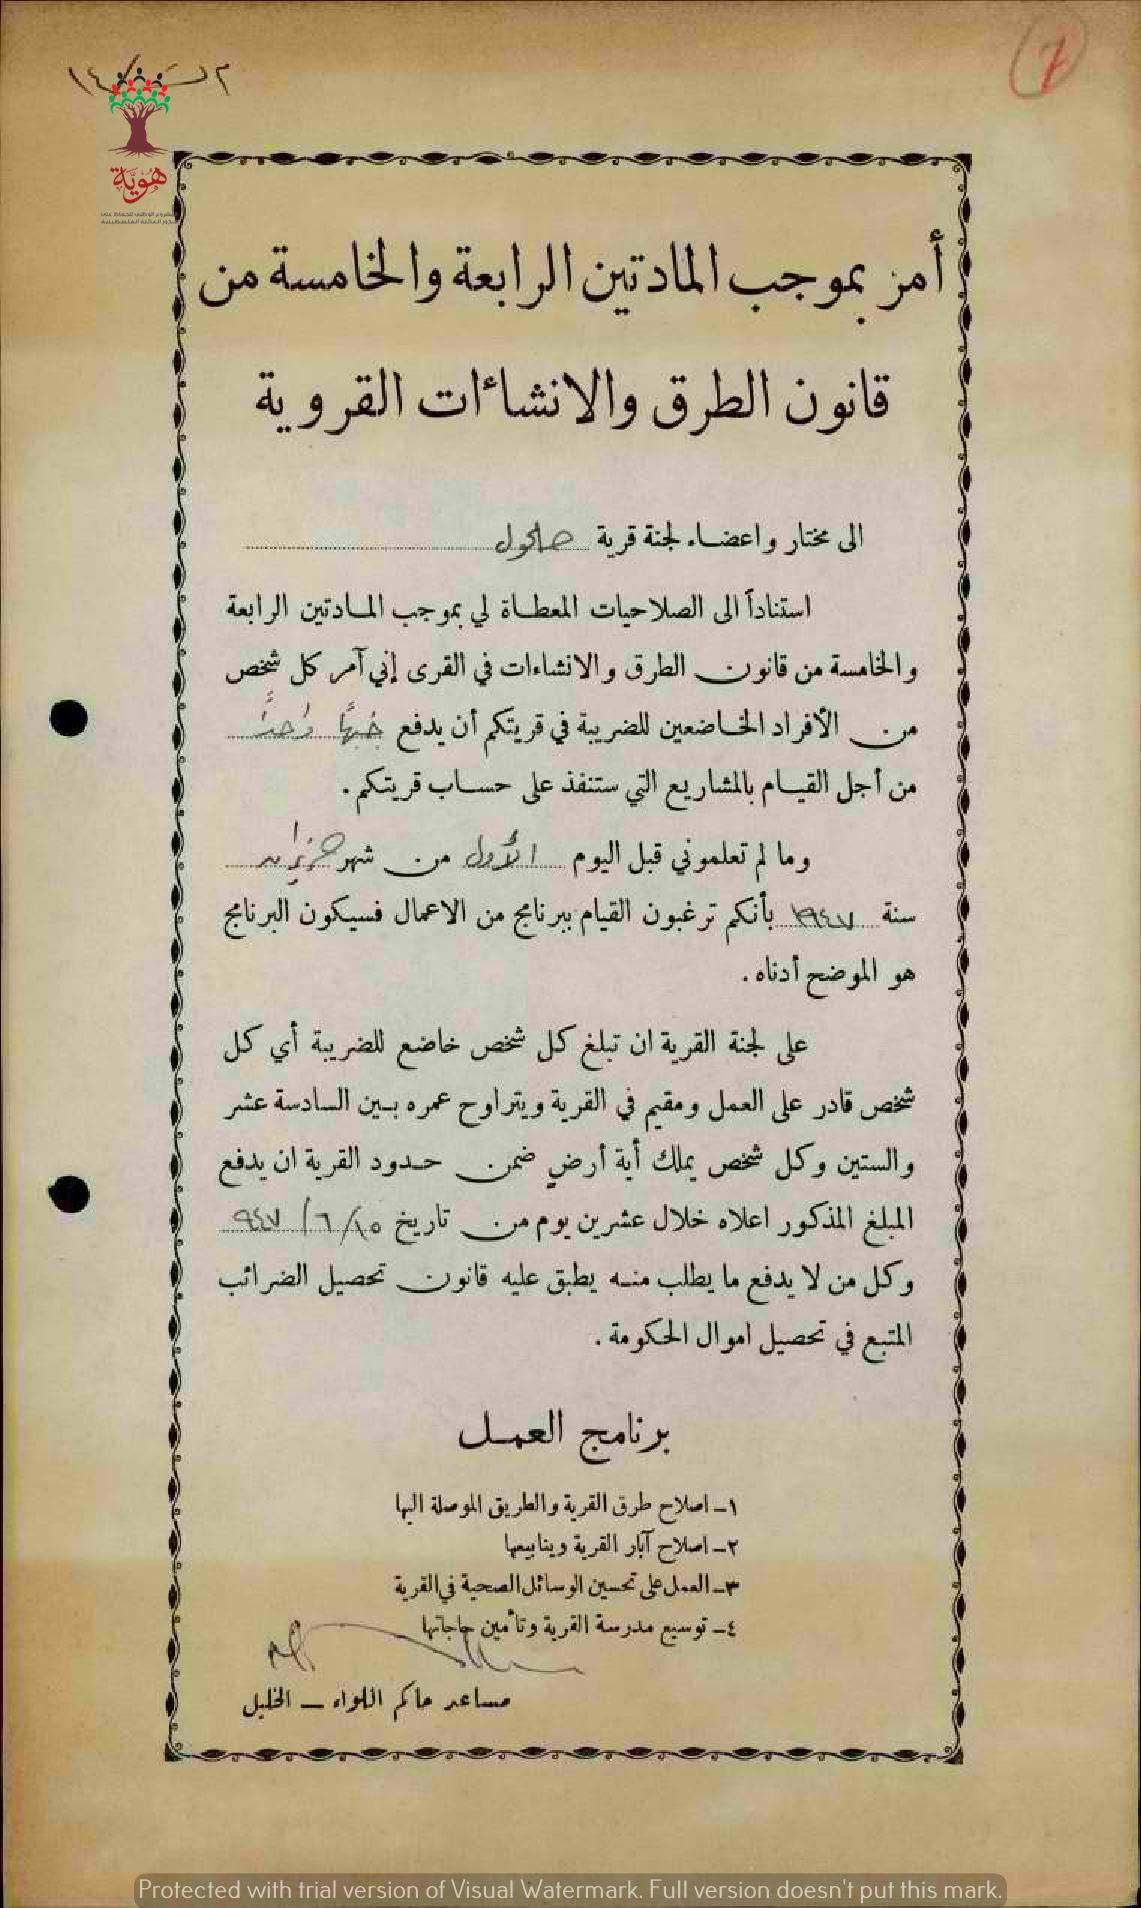 7
هوية
أمر بموجب المادتين الرابعة والخامسة من
قانون الطرق والانشاءات القروية
الى مختار واعضاء لجنة قرية حلحول
استناداً الى الصلاحيات المعطاة لي بموجب المادتين الرابعة
والخامسة من قانون الطرق والانشاءات في القرى إني آمر كل شخص
من الأفراد الخاضعين للضريبة في قريتكم أن يدفع جنيهًا واحدًا
من أجل القيام بالمشاريع التي ستنفذ على حساب قريتكم .
وما لم تعلموني قبل اليوم الأول من شهر حزيران
سنة ١٩٤٧ بأنكم ترغبون القيام ببرنامج من الاعمال فسيكون البرنامج
هو الموضح أدناه .
على لجنة القرية ان تبلغ كل شخص خاضع للضريبة أي كل
شخص قادر على العمل ومقيم في القرية ويتراوح عمره بين السادسة عشر
والستين وكل شخص يملك أية أرضٍ ضمن حدود القرية ان يدفع
المبلغ المذكور اعلاه خلال عشرين يوم من تاريخ ١٥/٦/٩٤٧
وكل من لا يدفع ما يطلب منه يطبق عليه قانون تحصيل الضرائب
المتبع في تحصيل اموال الحكومة .
برنامج العمل
١ــ اصلاح طرق القرية والطريق الموصلة اليها
٢ــ اصلاح آبار القرية وينابيعها
٣ــ العمل على تحسين الوسائل الصحية في القرية
٤ــ توسيع مدرسة القرية وتأمين حاجاتها
مساعد حاكم اللواء ــ الخليل
Protected with trial version of Visual Watermark. Full version doesn't put this mark.